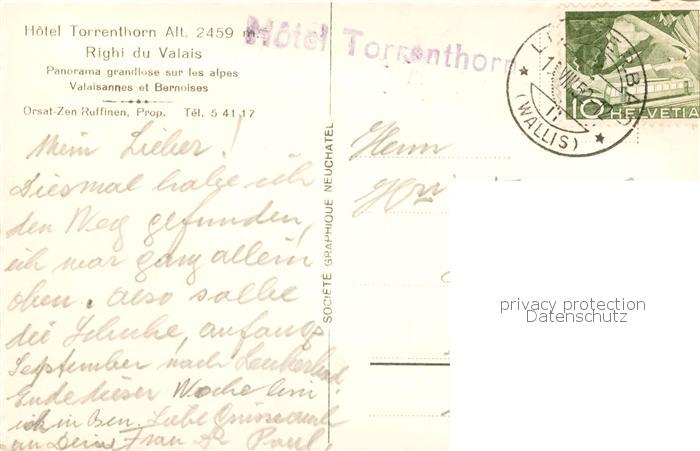 Hôtel Torrenthorn Alt. 2459 m
Righi du Valais
Panorama grandiose sur les alpes
Valaisannes et Bernoises
Orsat-Zen Ruffinen, Prop. Tél. 5 41 17
Hôtel Torrenthorn
(WALLIS)
10 HELVETIA
SOCIÉTÉ GRAPHIQUE NEUCHATEL
Mein Lieber!
Diesmal habe ich
den Weg gefunden,
ich war ganz allein
oben. Also sollte
die Schuhe, anfangs
September nach Leukerbad.
Ende dieser Woche bin
ich in Bern. Liebe Grüsse auch
an Deine Frau Dr Paul.
Herrn
privacy protection
Datenschutz